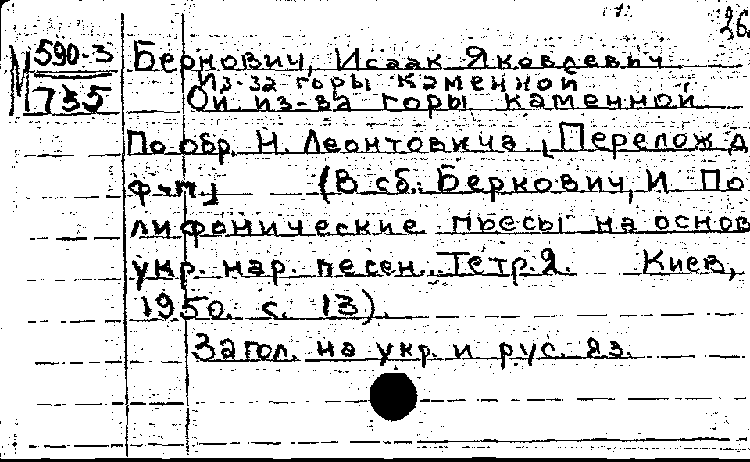 26.
М 590-3
735
Беркович, Исаак Яковлевич
Из-за горы каменной
Ой из-за горы каменной
По обр. Н. Леонтовича. [Перелож д
ф-п.] (В сб.: Беркович, И По
лифонические пьесы на основ
укр. нар. песен. Тетр. 2. Киев,
1950. с. 13).
Загол. на укр. и рус. яз.